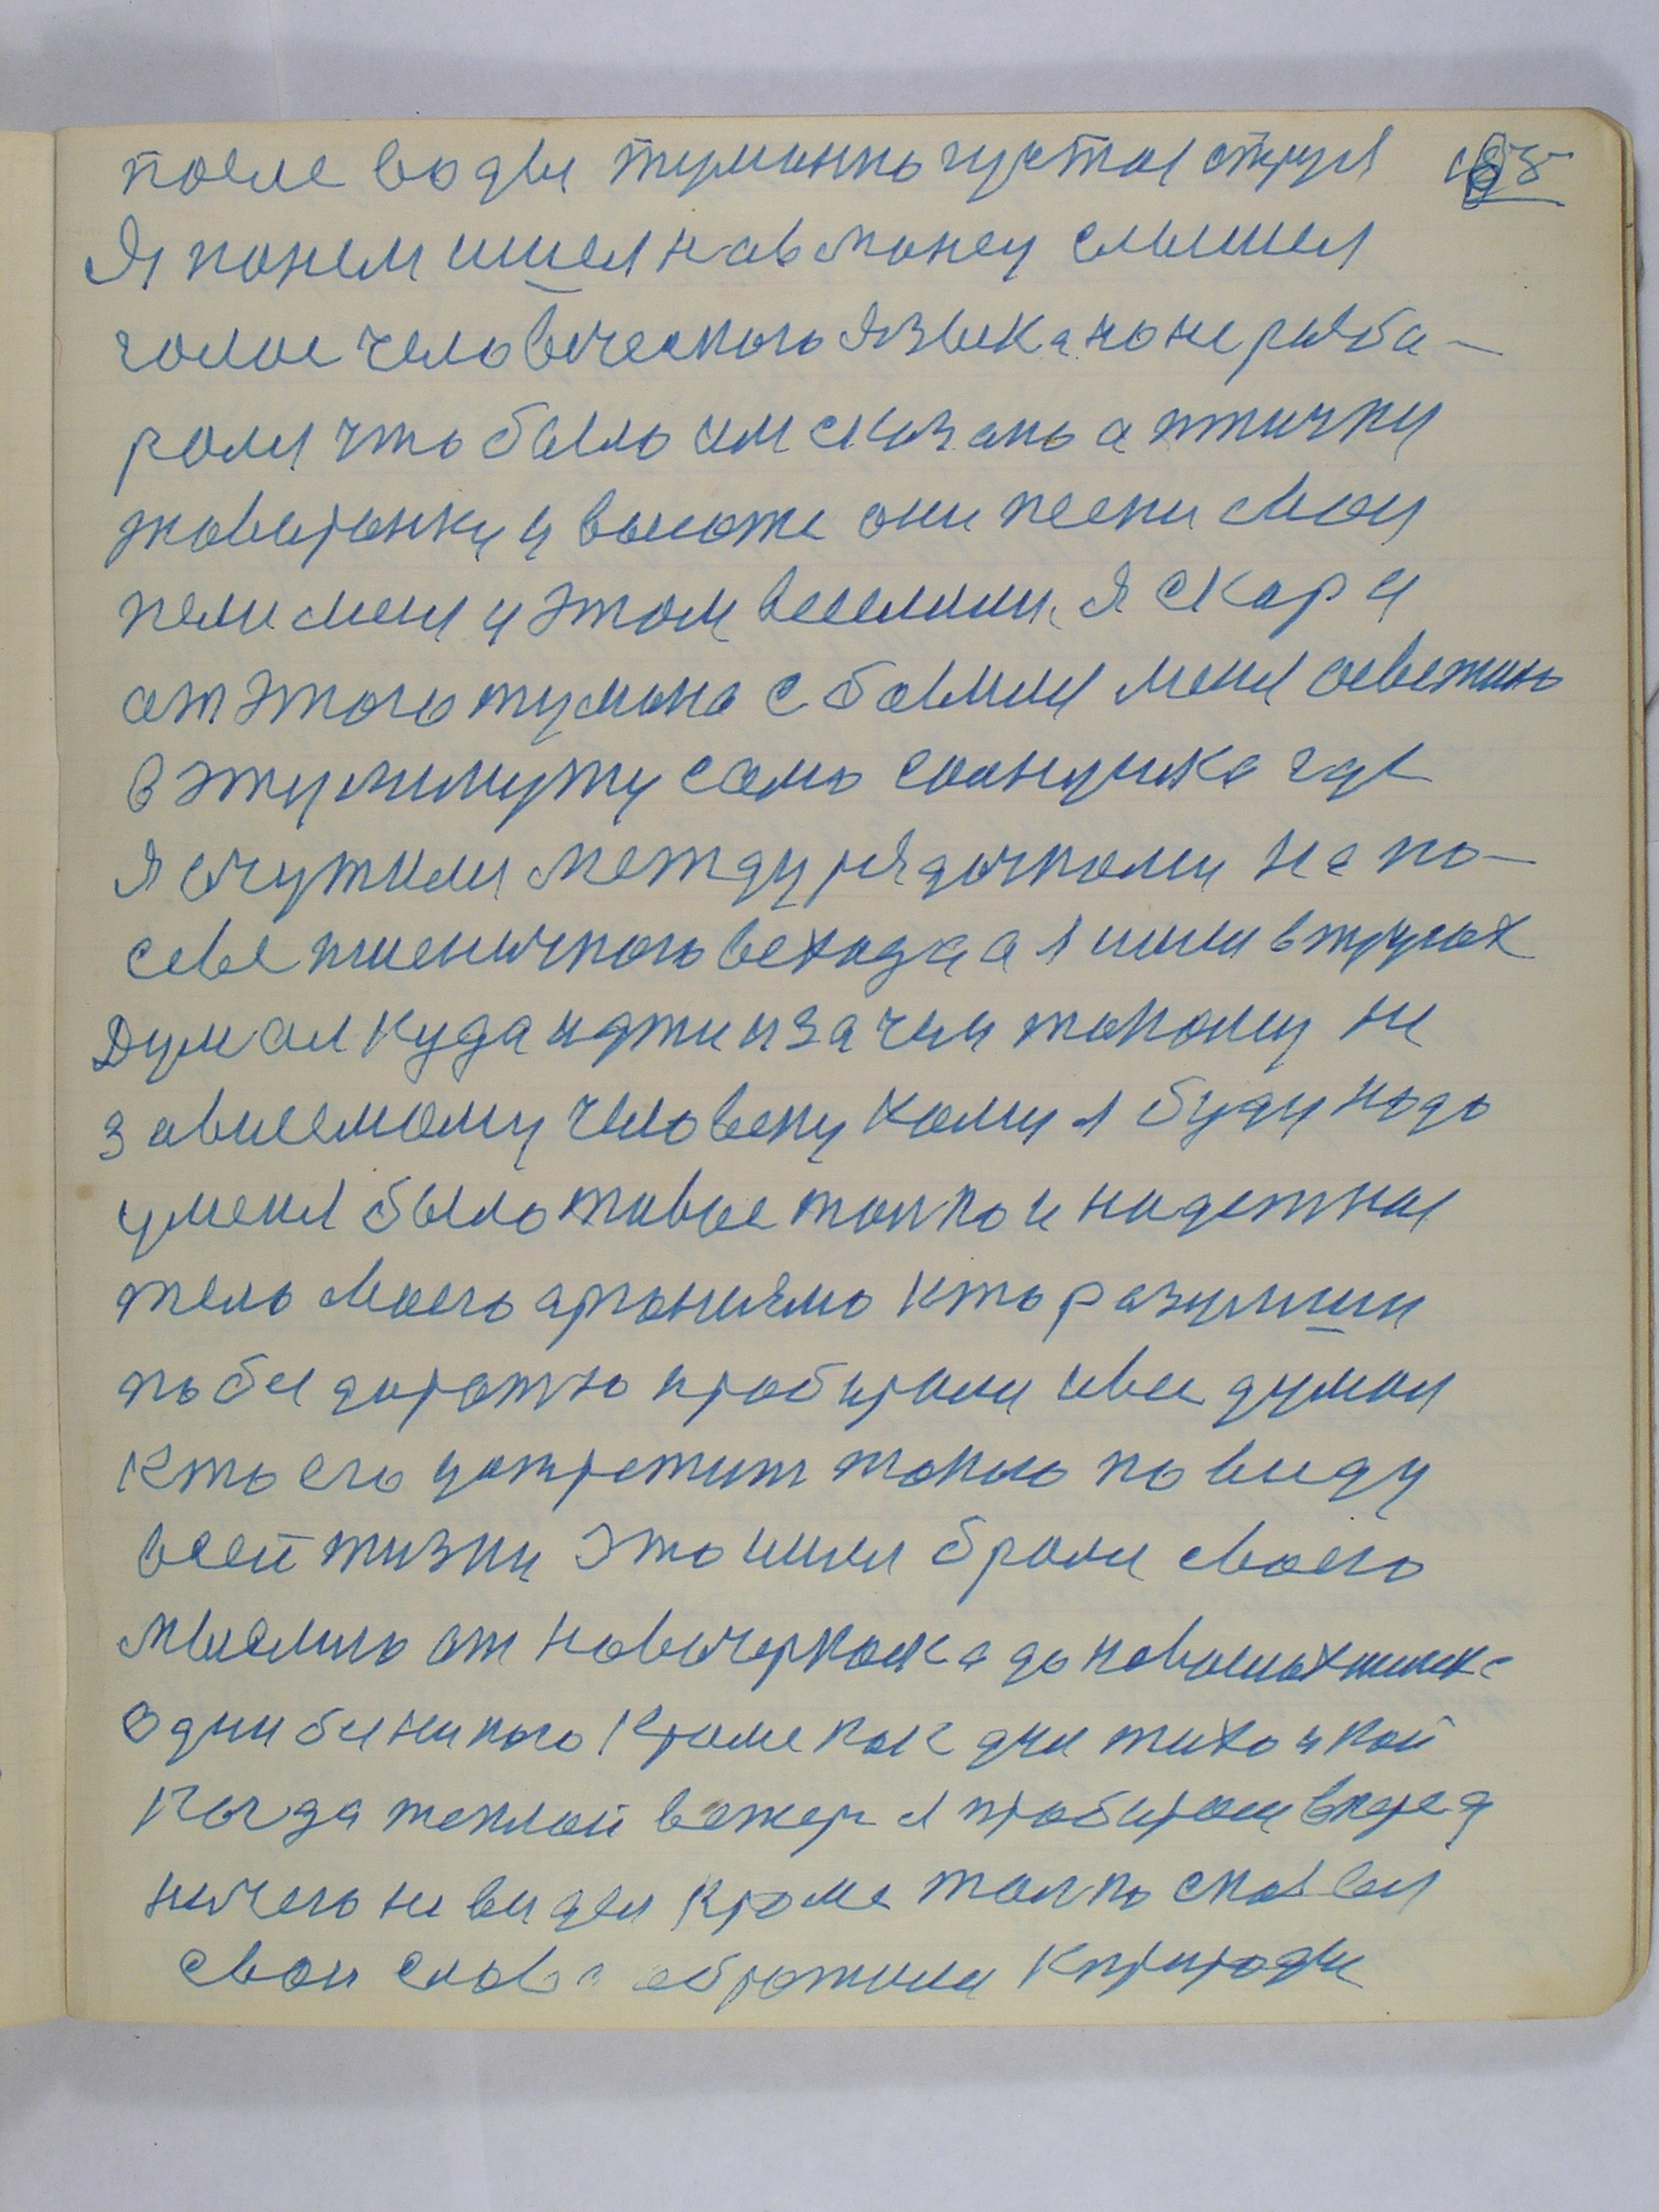 после воды туманно густая струя
Я по нем ишел на в лонец слышел
голос человеческого языка но не разба-
рал что было им сказано а птички
жаваронки у высоте они песни свои
пели меня у этом веселили. Я скора
от этого тумана с бавился меня асветило
в эту минуту само солнушка где
я очутился между рядочками на по-
севе пшеничного всхода а я ишел в трусах
Думал куда идти и за чем такому не
зависемому человеку кому я буду надо
у меня было живое только и надежное
тело моего арганизмо кто разумши
по без дарожю пробирался и все думал
кто его устретит только по виду
всей жизни это ишла брала своего
мыслию от Новочеркаска до
Один без никого Кроме как дул тихонькой
Когда теплой ветер я пробирался вперед
ничего не видел кроме только сказал
свои слова обратился к природе